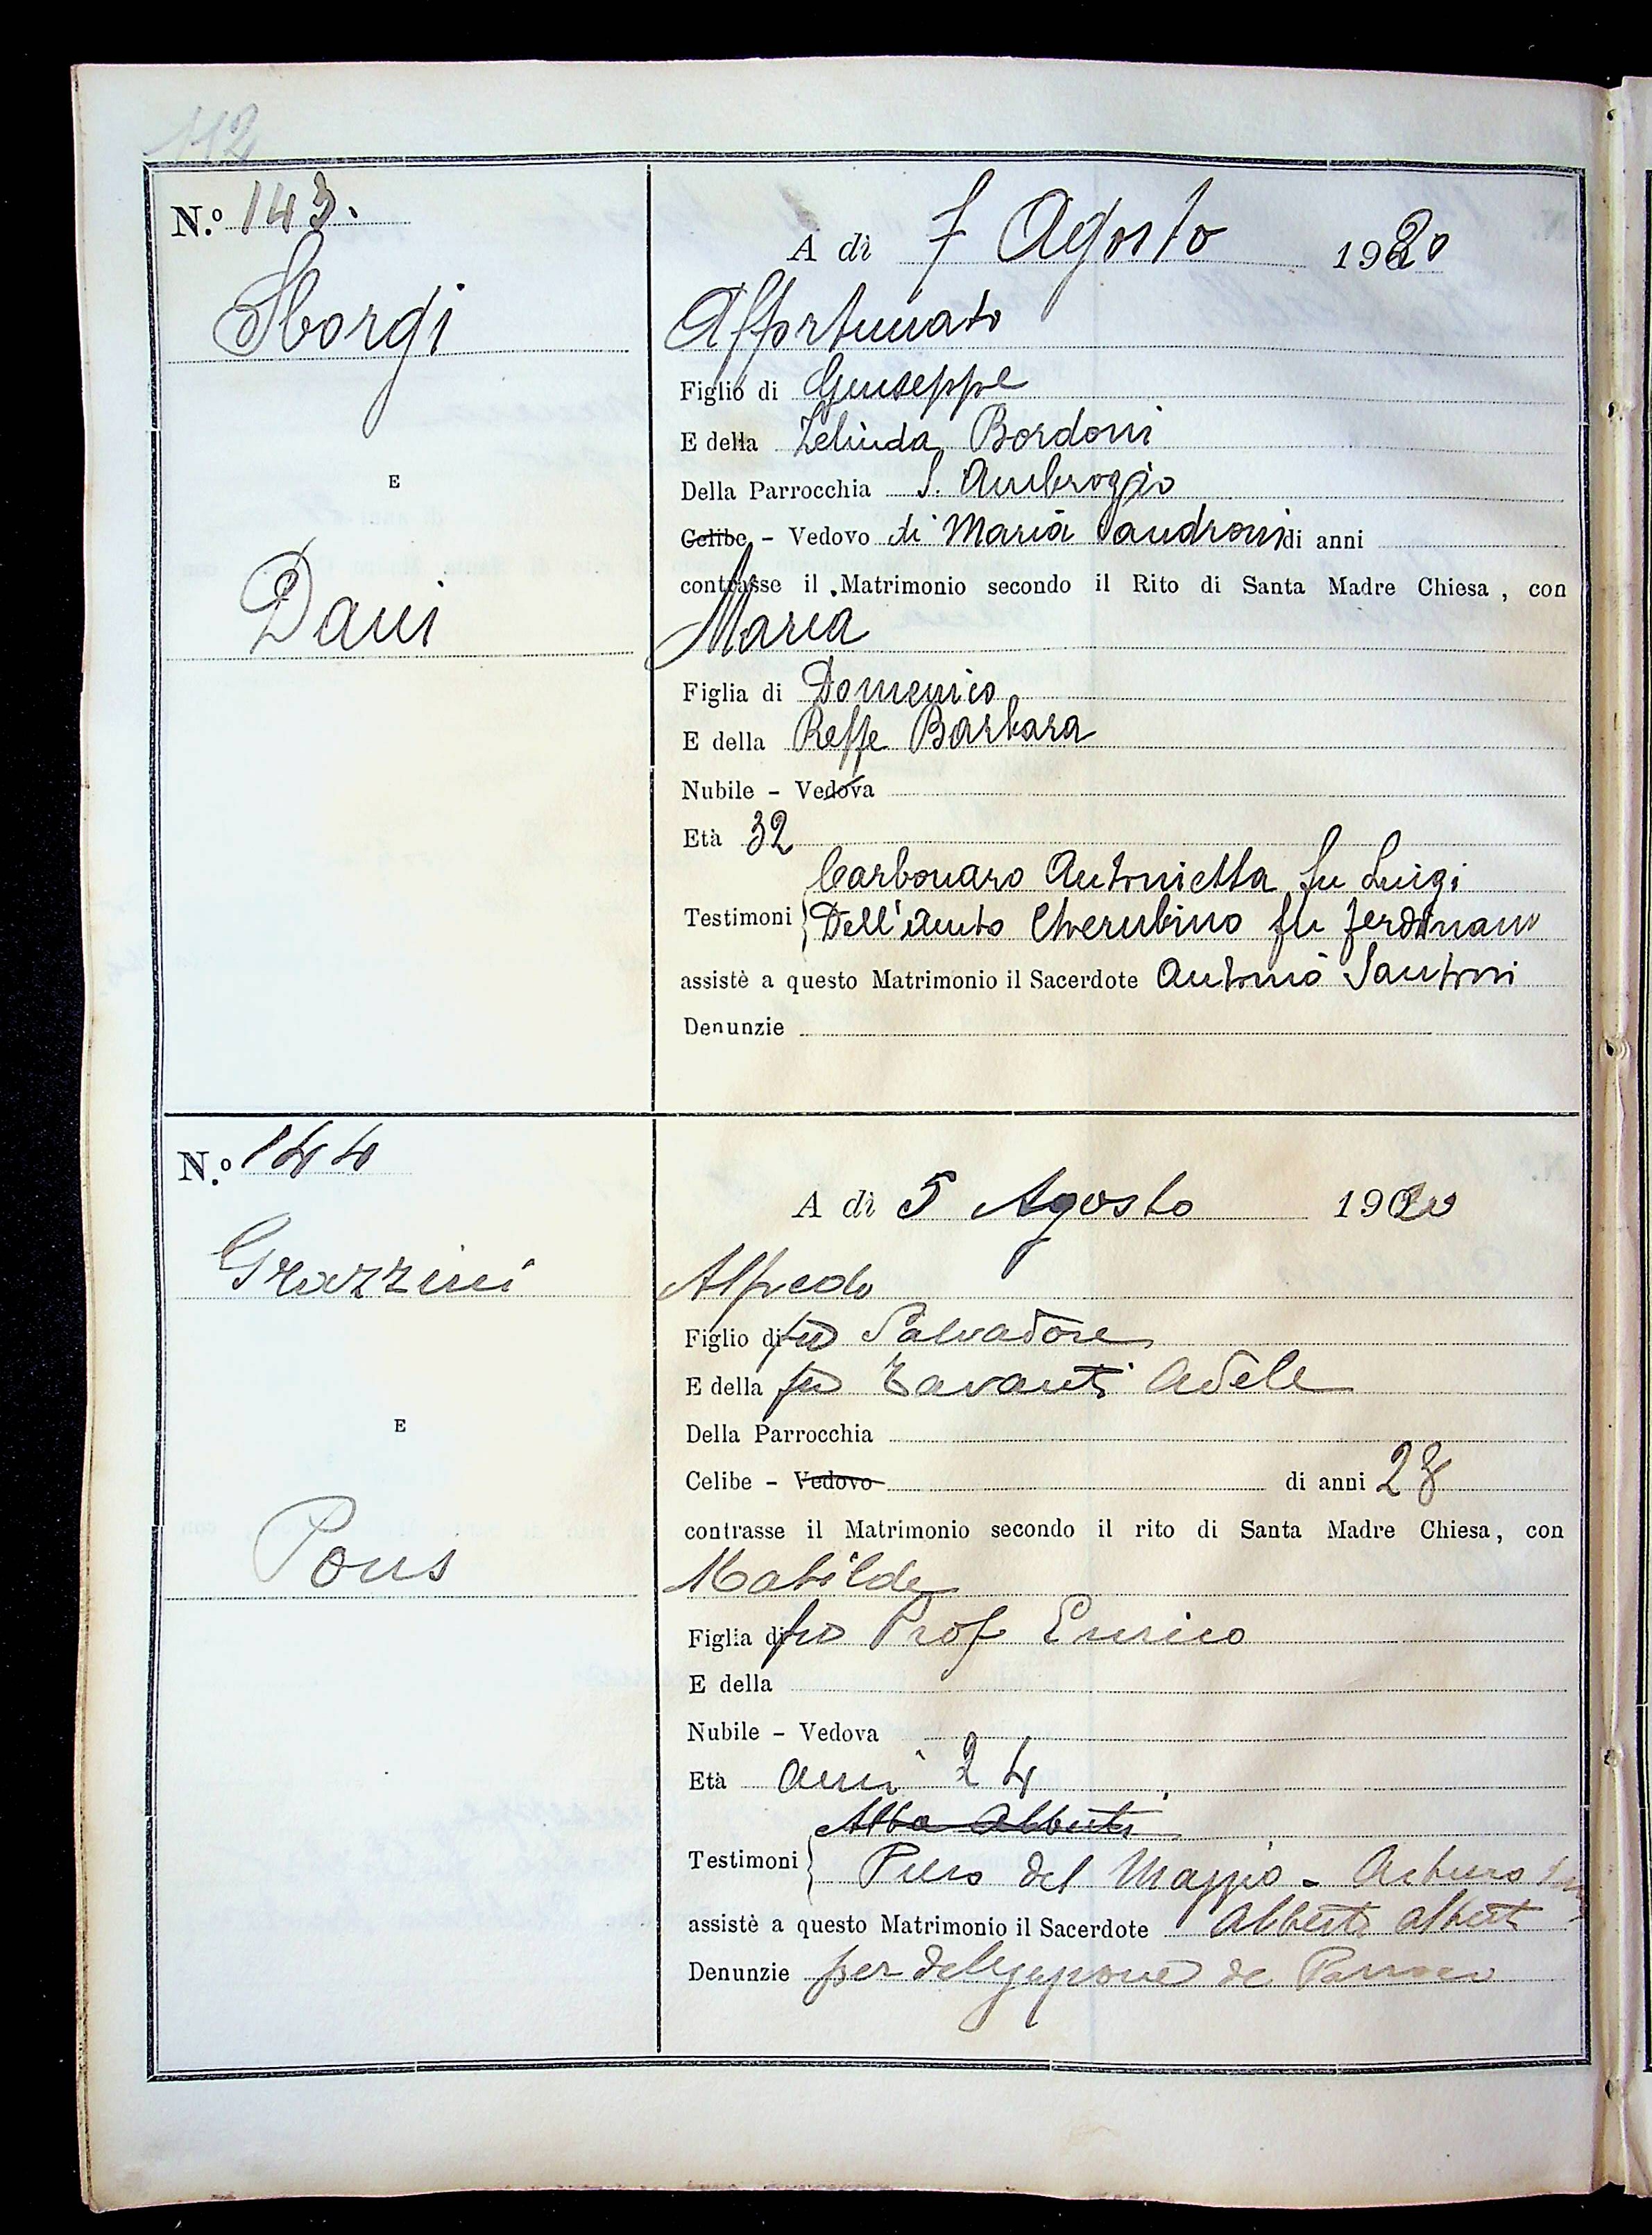 112
N.º 143.
Sborgi
E
Dani
A dì 7 Agosto 1920
Affortunato
Figlio di Giuseppe
E della Zelinda Bordoni
Della Parrocchia S. Ambrogio
Celibe - Vedovo di Maria Sandroni di anni
contrasse il Matrimonio secondo il Rito di Santa Madre Chiesa, con
Maria
Figlia di Domenico
E della Reffe Barbara
Nubile - Vedova
Età 32
Carbonaro Antonietta fu Luigi
Testimoni Dell'Aiuto Cherubino fu
assistè a questo Matrimonio il Sacerdote Antonio Santoni
Denunzie
N.º 144
Grazzini
E
Pons
A dì 5 Agosto 1920
Alfredo
Figlio di fu Salvadore
E della fu Tavanti Adele
Della Parrocchia
Celibe - Vedovo di anni 28
contrasse il Matrimonio secondo il rito di Santa Madre Chiesa, con
Matilde
Figlia di fu Prof Enrico
E della
Nubile - Vedova
Età anni 24
Alba Alberti
Testimoni Piero del Maggio - Arturo
assistè a questo Matrimonio il Sacerdote Alberti Albert
Denunzie per delegazione de Parroco